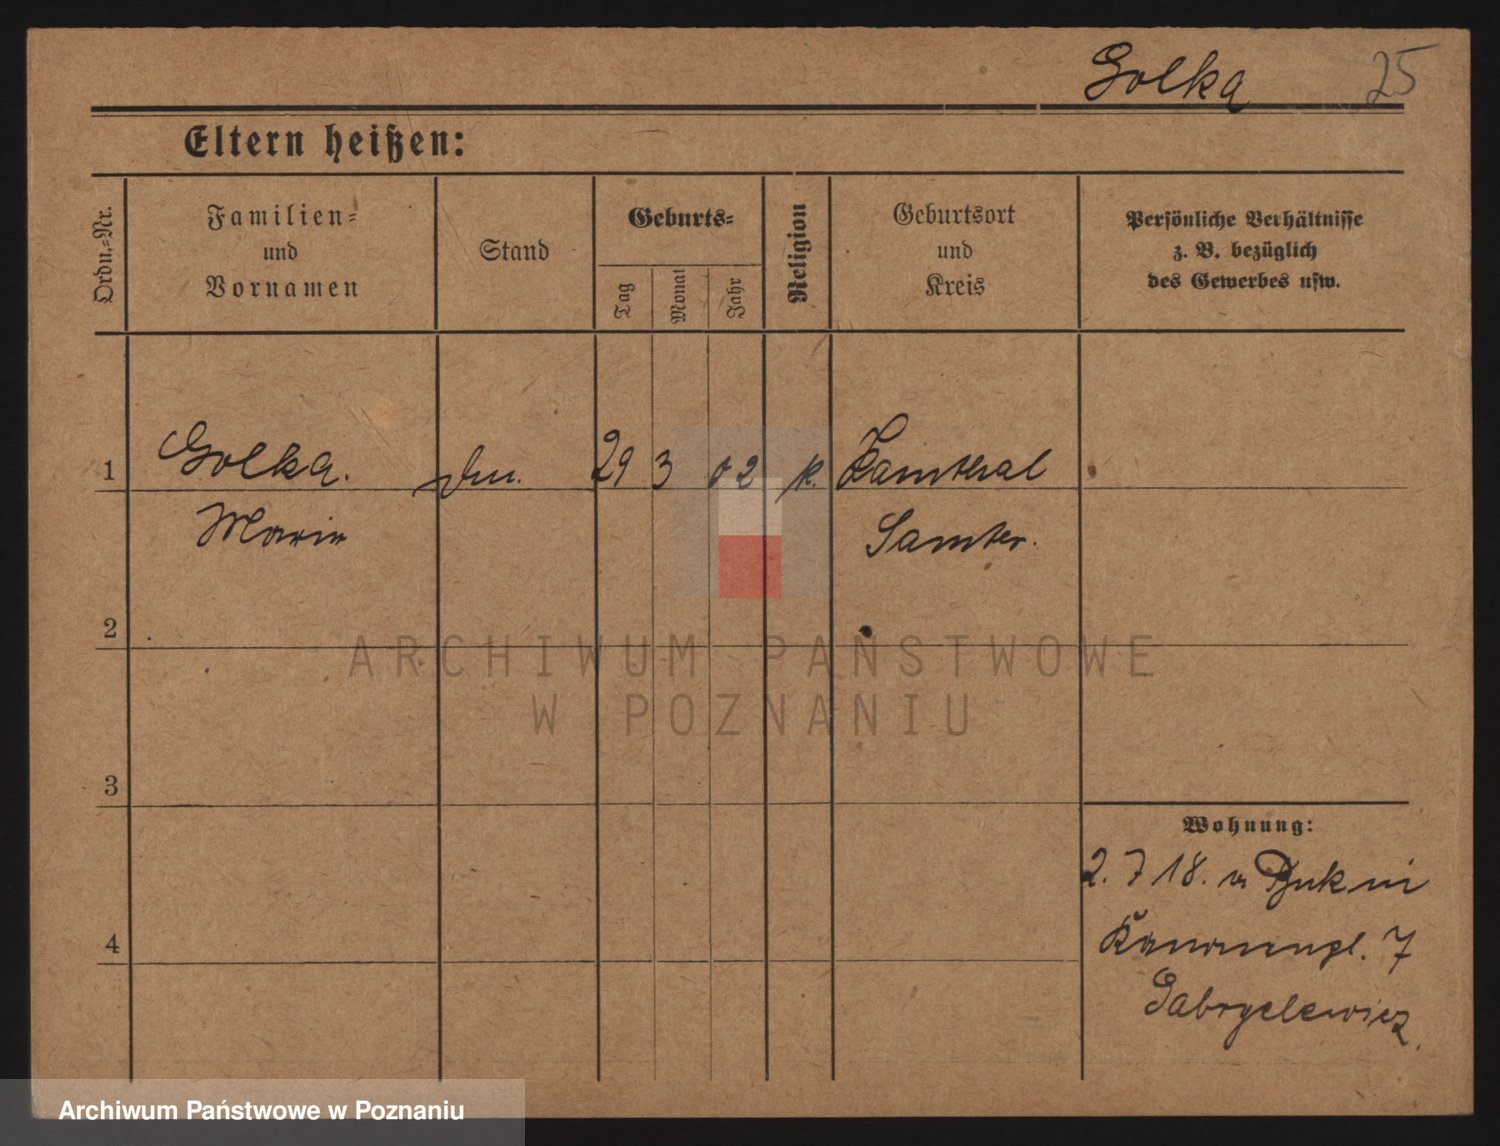 Golka 25
Eltern heißen:
Ordn.-Nr.
Familien-
und
Vornamen
Stand
Geburts-
Tag
Monat
Jahr
Religion
Geburtsort
und
Kreis
Persönliche Verhältnisse
z. B. bezüglich
des Gewerbes usw.
1 Golka. 29 3 02 k.
Samter.
2
3
4
Wohnung:
2. 7 18. v
7
Gabryelewicz
ARCHIWUM PAŃSTWOWE
W POZNANIU
Archiwum Państwowe w Poznaniu